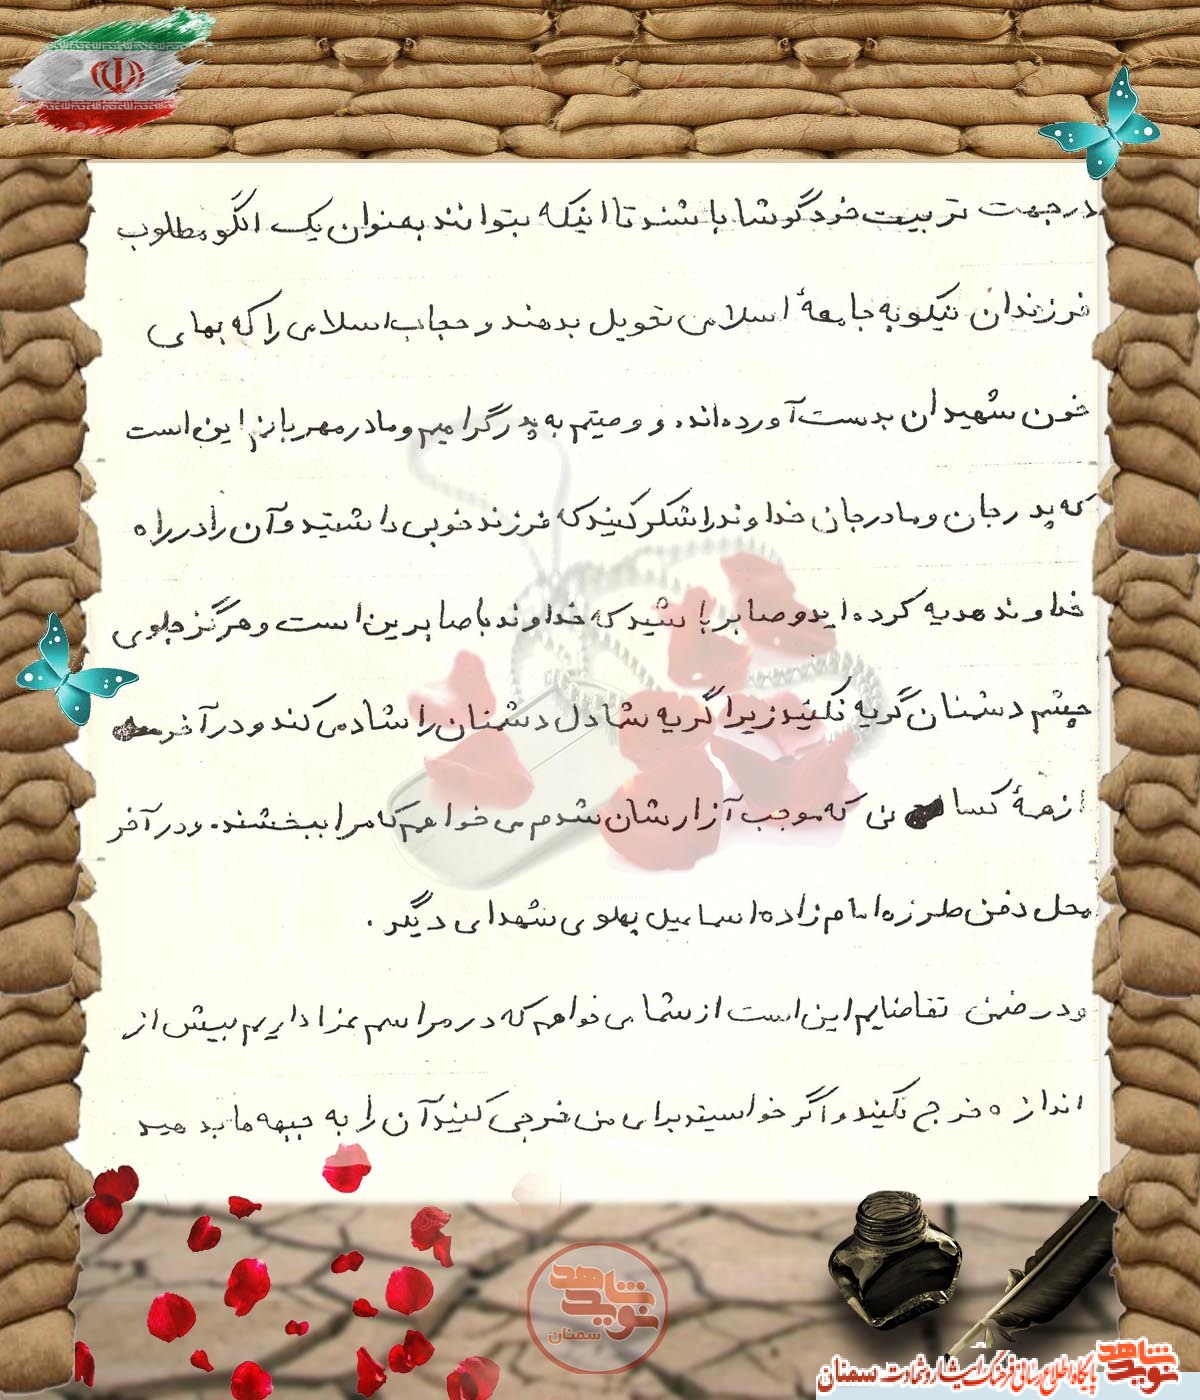 در جهت تربیت خود کوشا باشند تا اینکه بتوانند بعنوان یک الگو مطلوب
فرزندان نیکو به جامعهٔ اسلامی تحویل بدهند و حجاب اسلامی را که بهای
خون شهیدان بدست آورده‌اند. و وصیتم به پدر گرامیم و مادر مهربانم این است
که پدر جان و مادر جان خداوند را شکر کنید که فرزند خوبی داشتید و آن را در راه
خداوند هدیه کرده‌اید و صابر باشید که خداوند با صابرین است و هرگز جلوی
چشم دشمنان گریه نکنید زیرا گریه شما دل دشمنان را شاد می کند و در آخر
از همهٔ کسانی که موجب آزارشان شدم می خواهم که مرا ببخشند. و در آخر
محل دفن طرزه امام زاده اسماعیل پهلوی شهدای دیگر.
و در ضمن تقاضایم این است از شما می خواهم که در مراسم عزاداریم بیش از
اندازه خرج نکنید و اگر خواسیتد برای من خرجی کنید آن را به جبهه ها بدهید
شاهد
نوید
سمنان
پایگاه اطلاع رسانی فرهنگ ایثار و شهادت سمنان
نوید شاهد